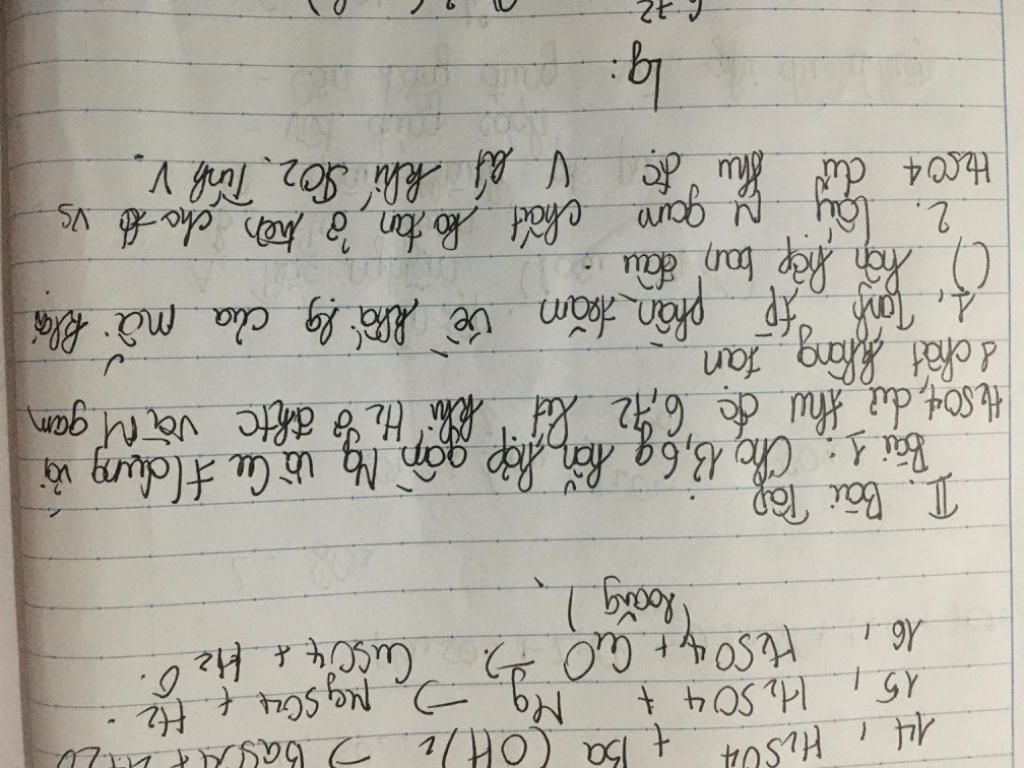 14, H2SO4 + Ba(OH)2 → BaSO4 + H2O
15, H2SO4 + Mg → MgSO4 + H2.
16, H2SO4 + CuO → CuSO4 + H2O.
(loãng)
II. Bài Tập
Bài 1: Cho 13,6g hỗn hợp gồm Mg và Cu t/dụng với
H2SO4 dư thu đc 6,72 lít khí H2 ở đktc và M gam
chất không tan
1, Tính tp phần trăm về khối lg của mỗi
hỗn hợp ban đầu.
2. Lấy M gam chất ko tan ở trên cho td vs
H2SO4 dư thu đc V lít khí SO2. Tính V.
lg:
6,72